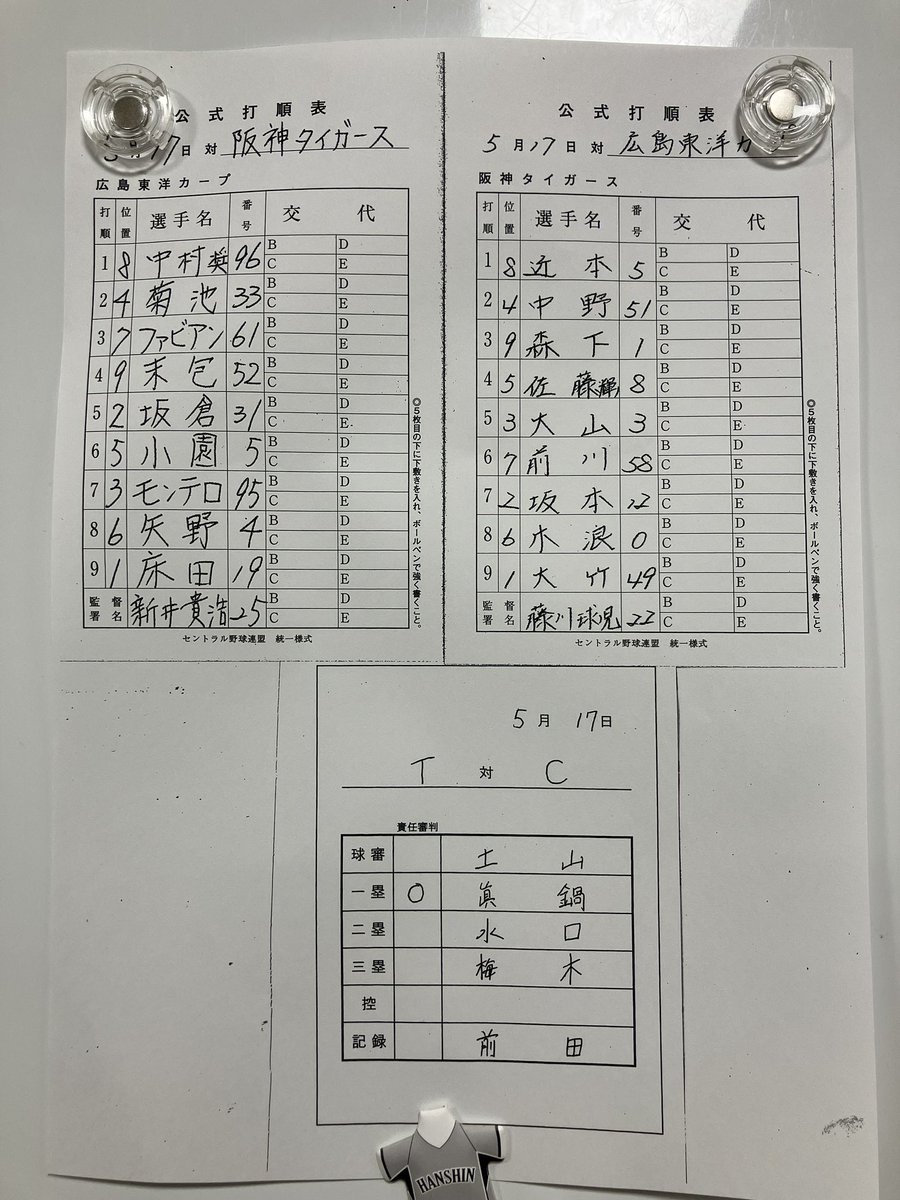 公式打順表
5月17日対 阪神タイガース
広島東洋カープ
打順 位置 選手名 番号 交代
1 8 中村奨 96 B D C E
2 4 菊池 33 B D C E
3 7 ファビアン 61 B D C E
4 9 末包 52 B D C E
5 2 坂倉 31 B D C E
6 5 小園 5 B D C E
7 3 モンテロ 95 B D C E
8 6 矢野 4 B D C E
9 1 床田 19 B D C E
監督署名 新井貴浩 25 B D C E
セントラル野球連盟 統一様式
◎5枚目の下に下敷きを入れ、ボールペンで強く書くこと。
公式打順表
5月17日対 広島東洋カ
阪神タイガース
打順 位置 選手名 番号 交代
1 8 近本 5 B D C E
2 4 中野 51 B D C E
3 9 森下 1 B D C E
4 5 佐藤輝 8 B D C E
5 3 大山 3 B D C E
6 7 前川 58 B D C E
7 2 坂本 12 B D C E
8 6 木浪 0 B D C E
9 1 大竹 49 B D C E
監督署名 藤川球児 22 B D C E
セントラル野球連盟 統一様式
◎5枚目の下に下敷きを入れ、ボールペンで強く書くこと。
5月17日
T 対 C
責任審判
球審 土山
一塁 ○ 眞鍋
二塁 水口
三塁 梅木
控
記録 前田
HANSHIN